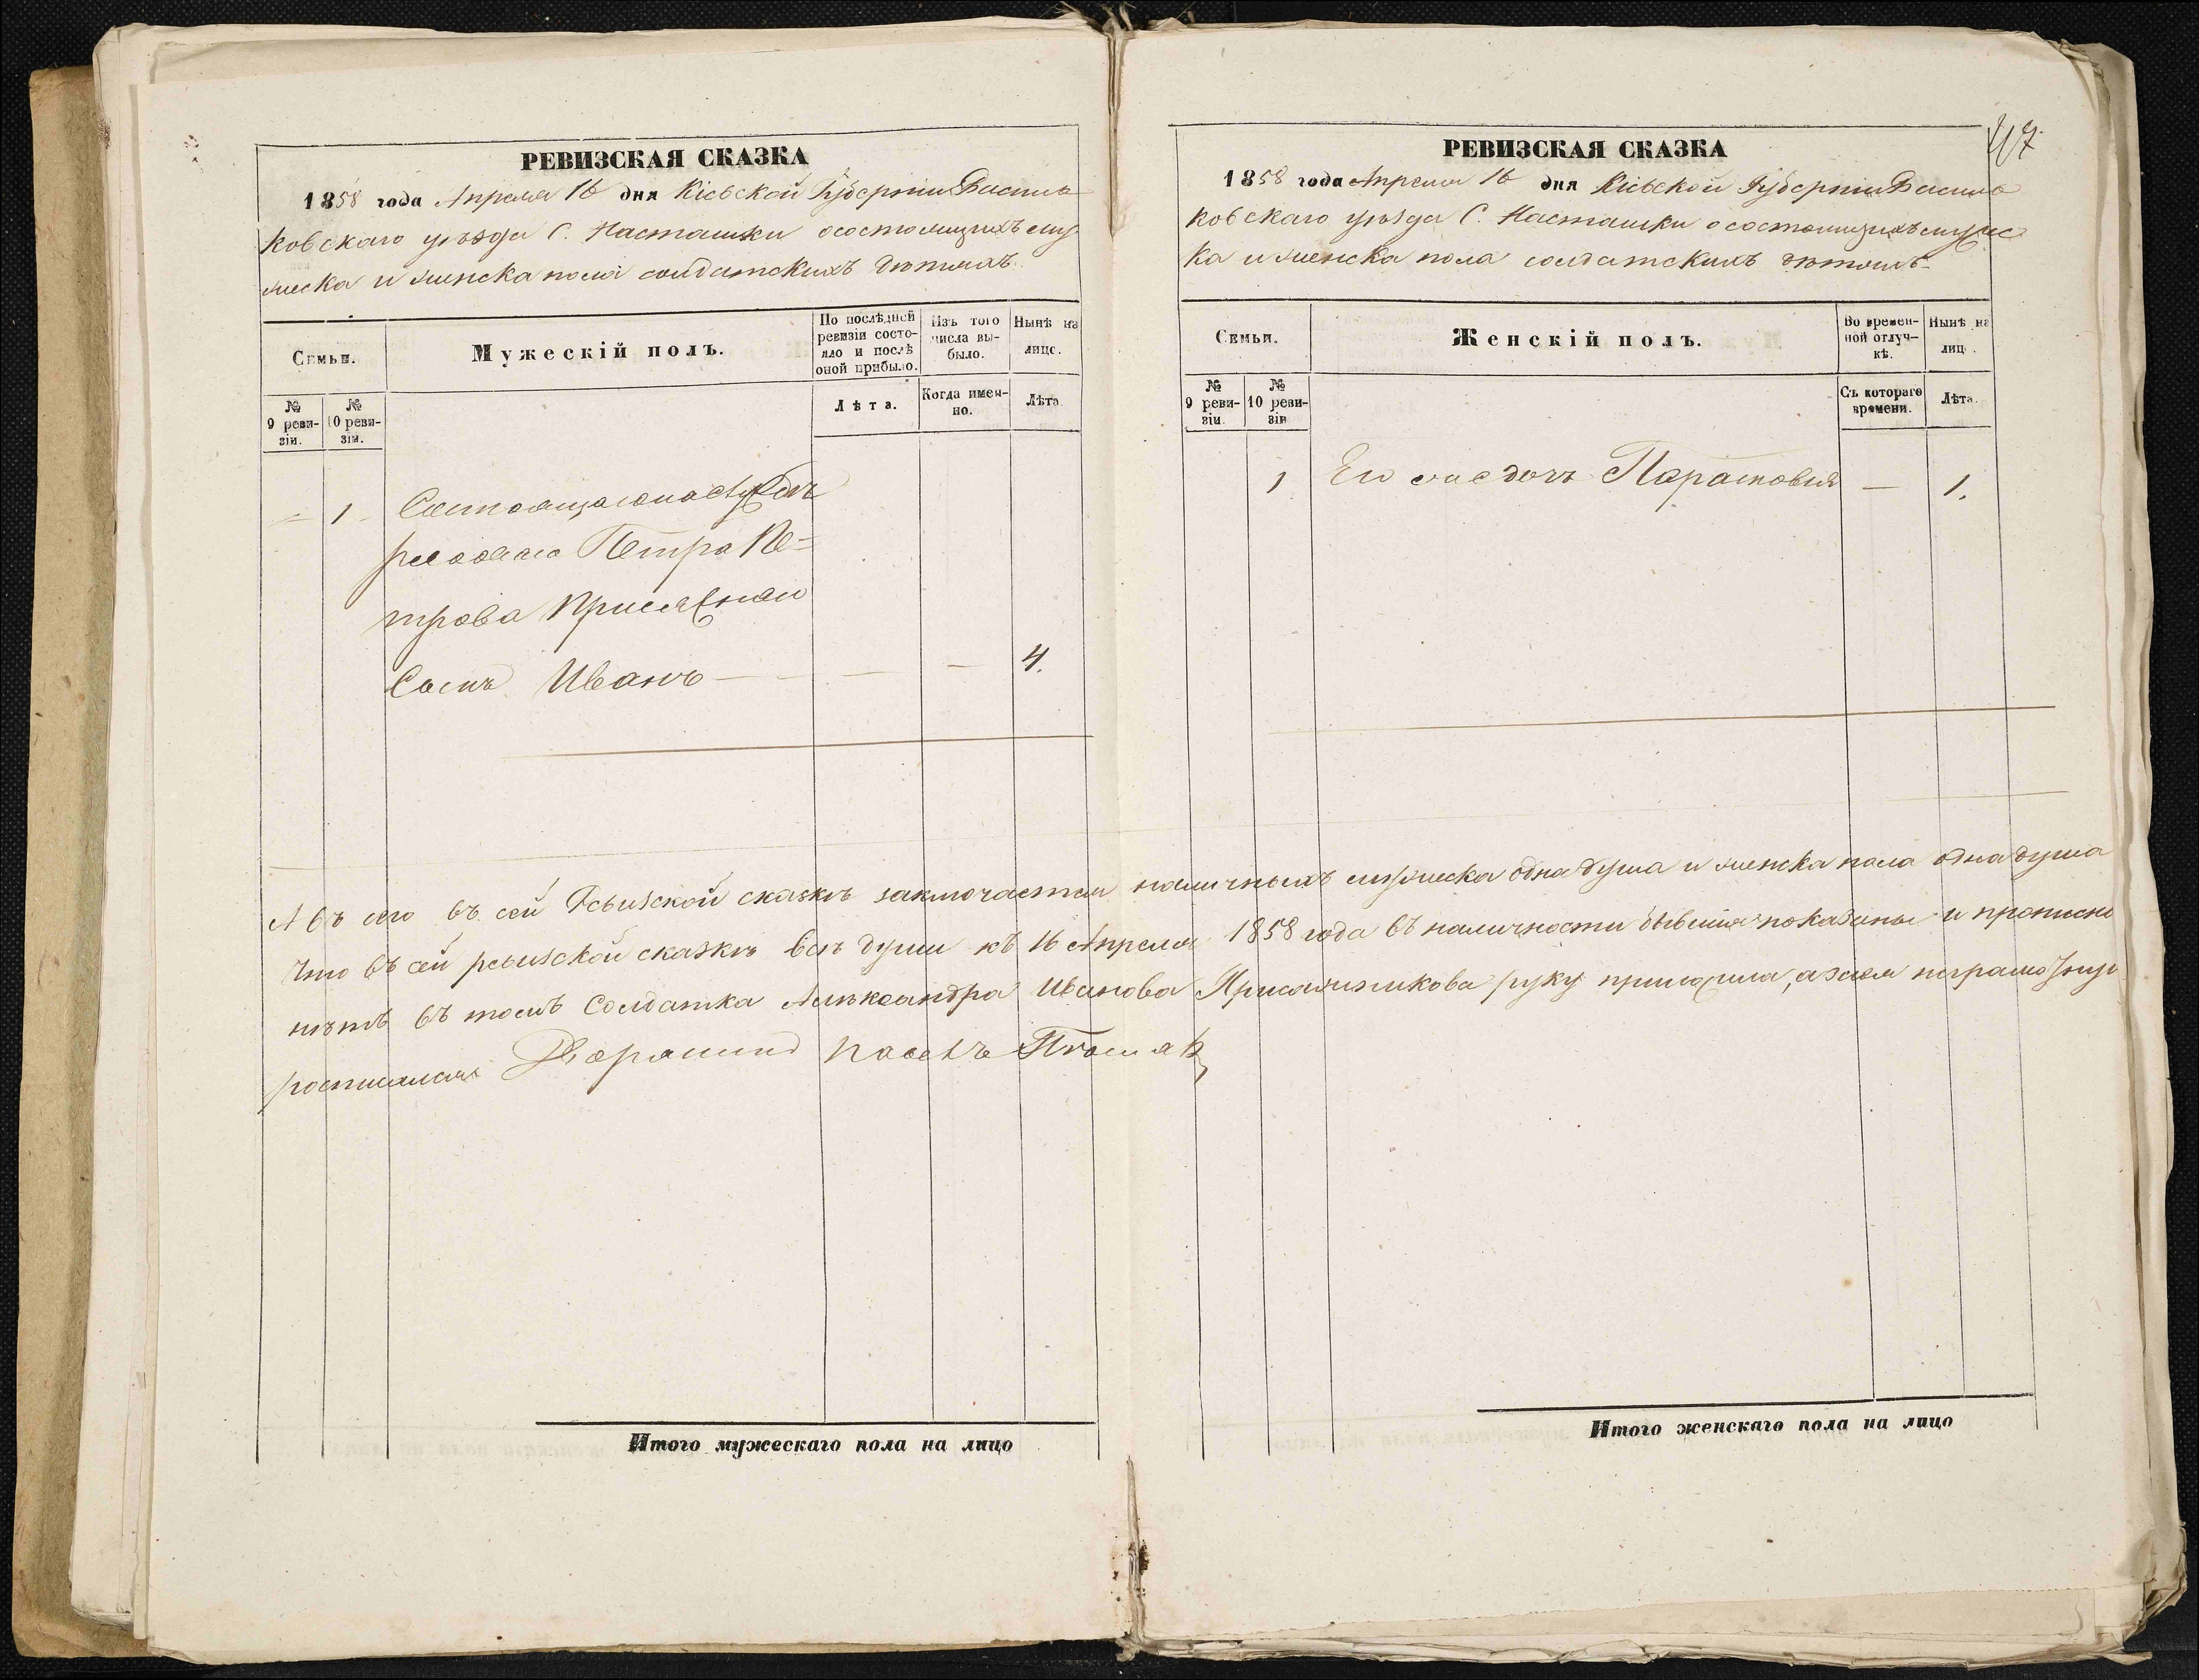 РЕВИЗСКАЯ СКАЗКА
1858 года Апреля 16 дня Кіевской Губерніи Василь
ковскаго уѣзда С. Насташки о состоящихъ муж
жеска и женска пола солдатскихъ дѣтяхъ
Семьи.
Мужескій полъ.
По послѣдней ревизіи состояло и послѣ оной прибыло.
Изъ того числа выбыло.
Нынѣ на лице.
№ 9 ревизіи.
№ 10 ревизіи.
Лѣта.
Когда именно.
Лѣта
1 Состоящаго на службѣ
рядоваго Петра Пе=
трова Присяжнаго
Сынъ Иванъ — — — 4.
Итого мужескаго пола на лицо
47
РЕВИЗСКАЯ СКАЗКА
1858 года Апреля 16 дня Кіевской Губерніи Василь
ковскаго уѣзда С. Насташки о состоящихъ мужес
ка и женска пола солдатскихъ дѣтяхъ
Семьи.
Женскій полъ.
Во временной отлучкѣ.
Нынѣ на лице.
№ 9 ревизіи.
№ 10 ревизіи
Съ котораго времени.
Лѣта.
1 Его же дочь Парасковія — 1.
А въ сего въ сей Ревизской сказкѣ заключается наличныхъ мужеска одна душа и женска пола одна душа
Что въ сей ревизской сказкѣ всѣ души къ 16 Апреля 1858 года въ наличности бывшія показаны и прописно
нѣтъ въ томъ Солдатка Александра Иванова Присяжникова руку приложила, а за нея неграмотную
росписался Дворянинъ
Итого женскаго пола на лицо